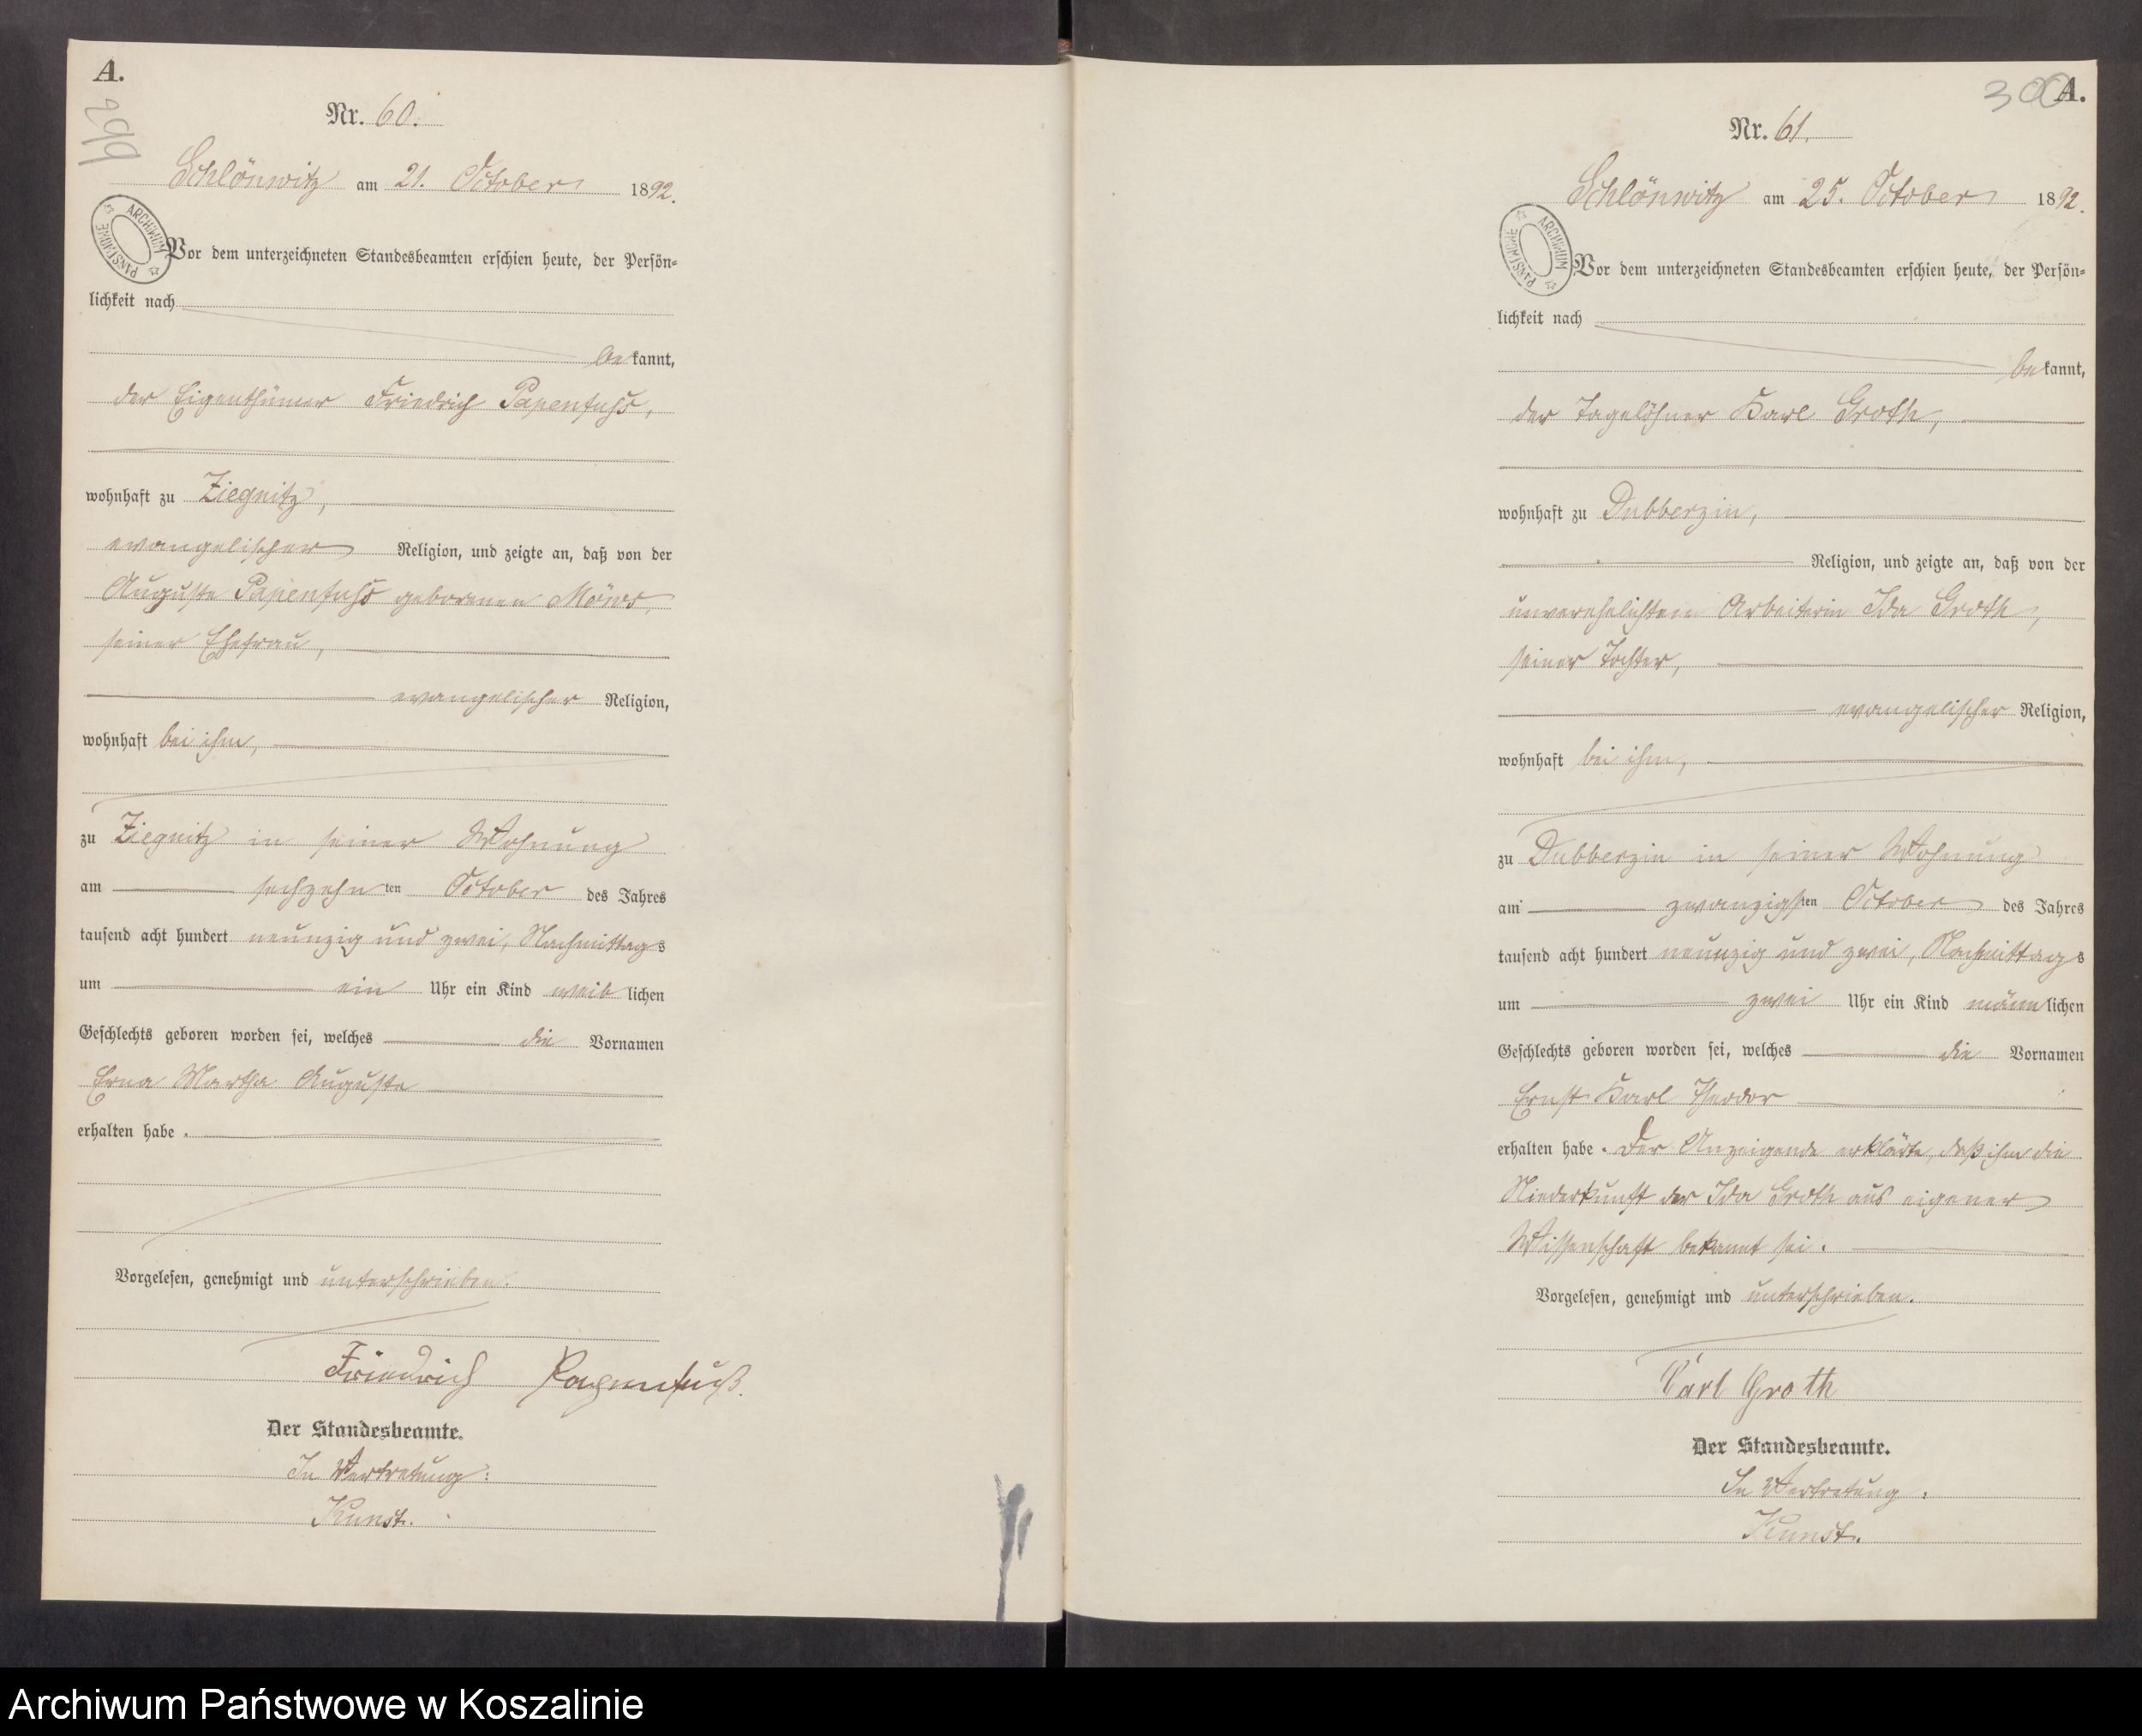 A.
299
Nr. 60.
Schlönwitz am 21. October 1892.
ARCHIWUM PAŃSTWOWE
Vor dem unterzeichneten Standesbeamten erschien heute, der Persön-
lichkeit nach
bekannt,
der Eigenthümer Friedrich Papenfuhs,
wohnhaft zu Ziegnitz,
evangelischer Religion, und zeigte an, daß von der
Auguste Papenfuhs geborenen
seiner Ehefrau,
evangelischer Religion,
wohnhaft bei ihm,
zu Ziegnitz in seiner Wohnung
am sechzehnten October des Jahres
tausend acht hundert neunzig und zwei, Nachmittags
um ein Uhr ein Kind weiblichen
Geschlechts geboren worden sei, welches die Vornamen
Erna Martha Auguste
erhalten habe.
Vorgelesen, genehmigt und unterschrieben.
Friedrich Papenfuß.
Der Standesbeamte.
In Vertretung:
Kunst.
300
A.
Nr. 61.
Schlönwitz am 25. October 1892.
ARCHIWUM PAŃSTWOWE
Vor dem unterzeichneten Standesbeamten erschien heute, der Persön-
lichkeit nach
bekannt,
der Tagelöhner Karl Groth,
wohnhaft zu Dubberzin,
Religion, und zeigte an, daß von der
unverehelichten Arbeiterin Ida Groth,
seiner Tochter,
evangelischer Religion,
wohnhaft bei ihm,
zu Dubberzin in seiner Wohnung
am zwanzigsten October des Jahres
tausend acht hundert neunzig und zwei, Nachmittags
um zwei Uhr ein Kind männlichen
Geschlechts geboren worden sei, welches die Vornamen
Ernst Karl Theodor
erhalten habe. Der Anzeigende erklärte, daß ihm die
Niederkunft der Ida Groth aus eigener
Wissenschaft bekannt sei.
Vorgelesen, genehmigt und unterschrieben.
Karl Groth
Der Standesbeamte.
In Vertretung.
Kunst.
Archiwum Państwowe w Koszalinie